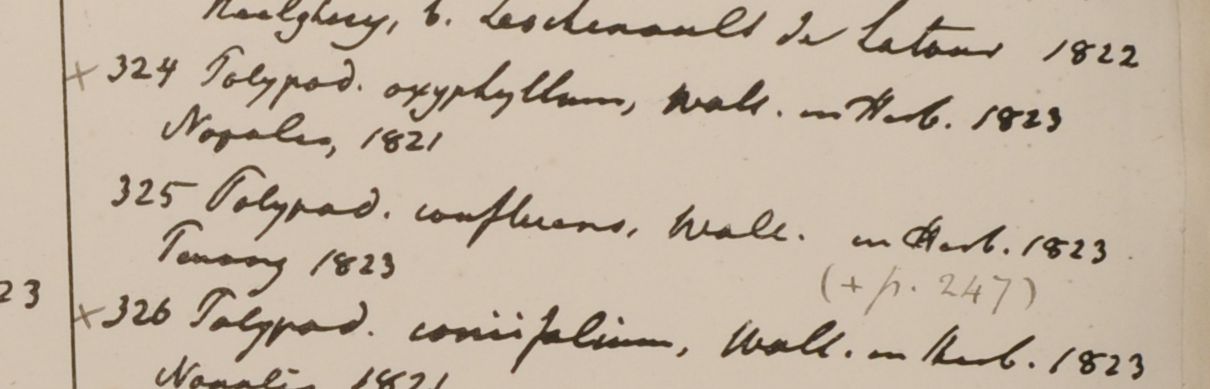 Neelghery, b. Leschenault de Latour 1822
+ 324 Polypod. oxyphyllum, Wall. in Herb. 1823
Napalia, 1821
325 Polypod. confluens, Wall. in Herb. 1823
Penang 1823
(+ p. 247)
23
× 326 Polypod. coniifolium, Wall. in Herb. 1823
Napalia 1821